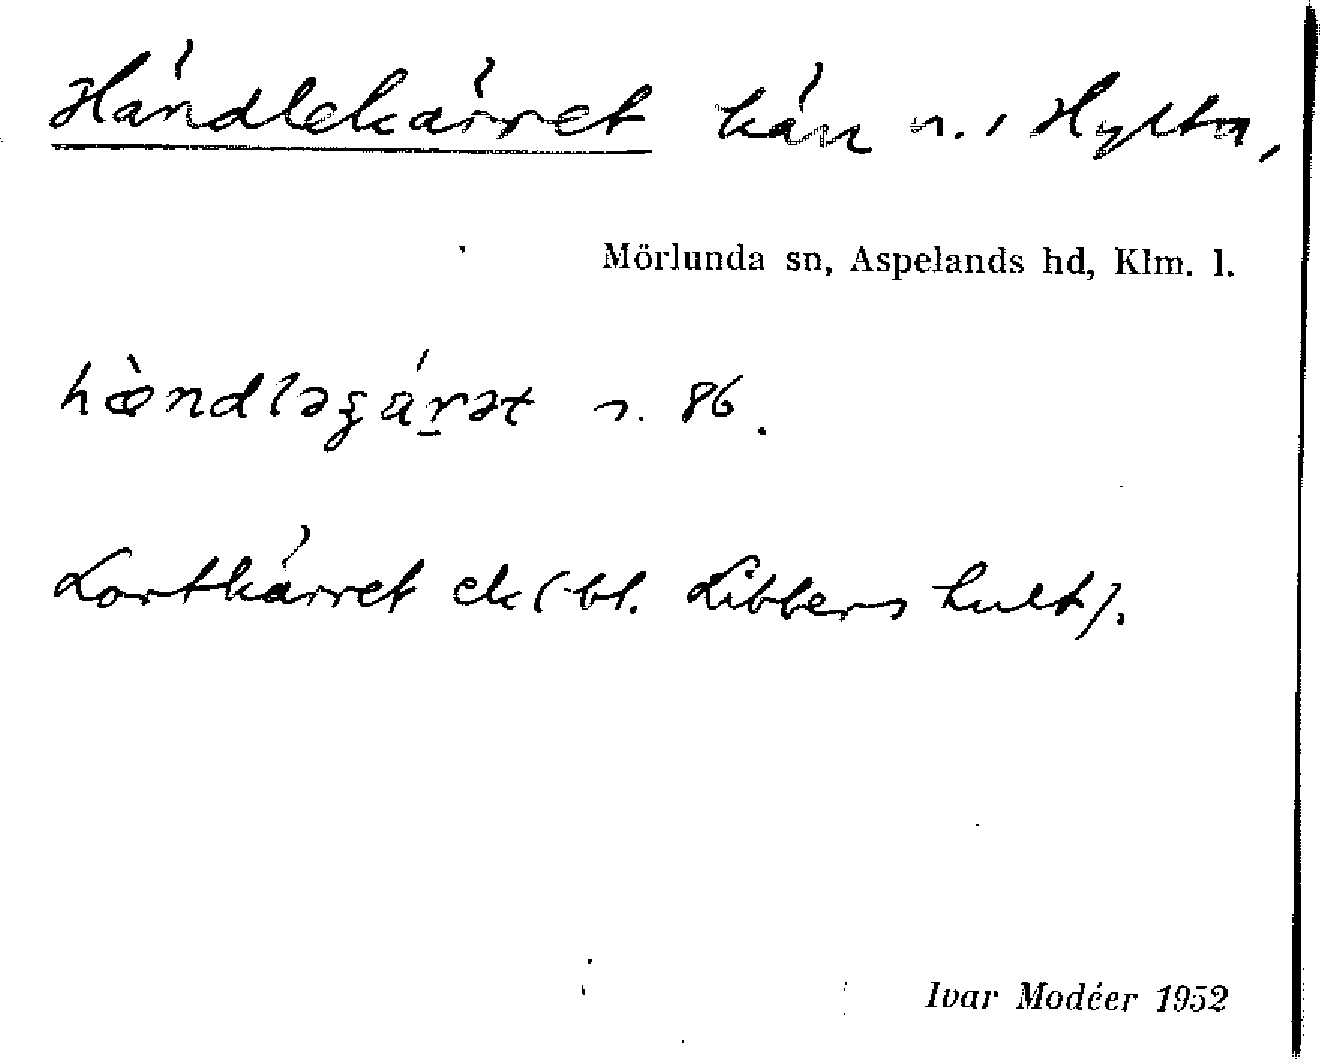 Händlekärret kärr n. i Hylta,
Mörlunda sn, Aspelands hd, Klm. l.
hæ̀ndləgárət s. 86.
Lortkärret ek (bl. Libbershult).
Ivar Modéer 1952